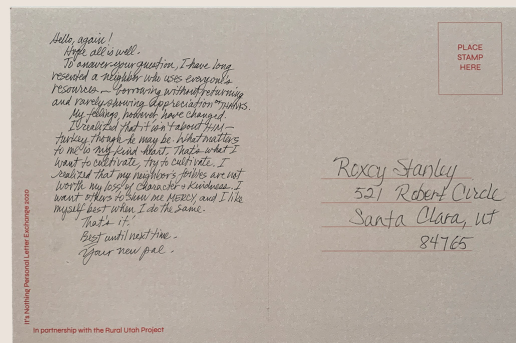 Hello, again!
Hope all is well.
To answer your question, I have long
resented a neighbor who uses everyone's
resources — borrowing without returning
and rarely showing appreciation or THANKS.
My feelings, however have changed.
I realized that it isn't about HIM —
turkey though he may be. What matters
to me is my kind heart. That's what I
want to cultivate, try to cultivate. I
realized that my neighbor's foibles are not
worth my loss of character & kindness. I
want others to show me MERCY, and I like
myself best when I do the same.
That's it!
Best until next time.
Your new pal.
PLACE
STAMP
HERE
Roxcy Stanley
521 Robert Circle
Santa Clara, Ut
84765
It's Nothing Personal Letter Exchange 2020
In partnership with the Rural Utah Project